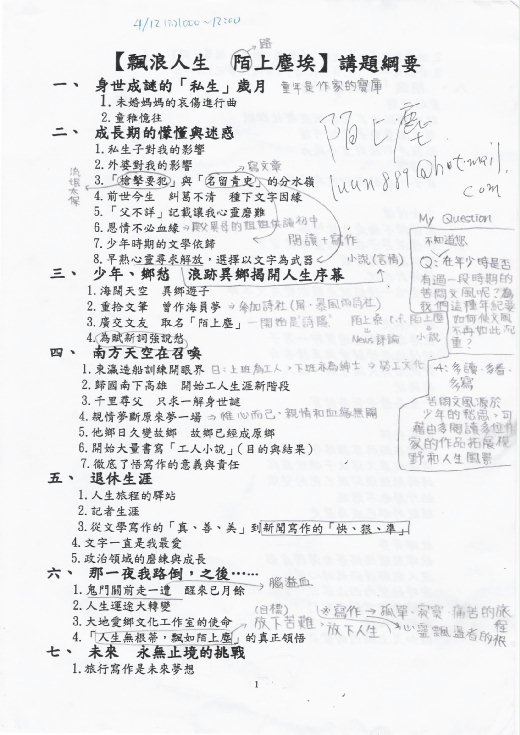 4/12 (六) 10:00~12:00
路
【飄浪人生 陌上塵埃】講題綱要
一、 身世成謎的「私生」歲月 童年是作家的寶庫
1. 未婚媽媽的哀傷進行曲
2. 童稚憶往
二、 成長期的懵懂與迷惑
1. 私生子對我的影響
2. 外婆對我的影響
寫文章
流氓太保
3.「槍擊要犯」與「名留青史」的分水嶺
4. 前世今生 糾葛不清 種下文字因緣
5.「父不詳」記載讓我心靈磨難
6. 恩情不必血緣
7. 少年時期的文學依歸 閱讀+寫作
8. 早熟心靈尋求解放，選擇以文字為武器 小說(言情)
陌上塵
luan889@hotmail.com
三、 少年、鄉愁 浪跡異鄉揭開人生序幕
1. 海闊天空 異鄉遊子
2. 重拾文筆 曾作海員夢 → 參加詩社(風、暴風雨詩社)
3. 廣交文友 取名「陌上塵」
4. 為賦新詞強說愁 News 評論 小說
My Question
不知道您
Q: 在年少時是否
有過一段時期的
苦悶文風呢？為
我們這種年紀要
如何使文風
不再如此沉
重？
A: 多讀、多看、
多寫
苦悶文風源於
少年的愁慮，可
藉由多閱讀多位作
家的作品拓展視
野和人生風景
四、 南方天空在召喚
1. 東瀛造船訓練開眼界 日：上班為工人，下班亦為紳士 → 勞工文化
2. 歸國南下高雄 開始工人生涯新階段
3. 千里尋父 只求一解身世謎
4. 親情夢斷原來夢一場 → 惟心而已，親情和血緣無關
5. 他鄉日久變故鄉 故鄉已經成原鄉
6. 開始大量書寫「工人小說」(目的與結果)
7. 徹底了悟寫作的意義與責任
五、 退休生涯
1. 人生旅程的驛站
2. 記者生涯
3. 從文學寫作的「真、善、美」到新聞寫作的「快、狠、準」
4. 文字一直是我最愛
5. 政治領域的磨練與成長
六、 那一夜我路倒，之後……
1. 鬼門關前走一遭 醒來已月餘 腦溢血
2. 人生運途大轉變
3. 大地愛鄉文化工作室的使命
(目標)
放下苦難、放下人生
寫作 → 孤單、寂寞、痛苦的旅程
心靈飄過者的旅
4.「人生無根蒂，飄如陌上塵」的真正領悟
七、 未來 永無止境的挑戰
1. 旅行寫作是未來夢想
1